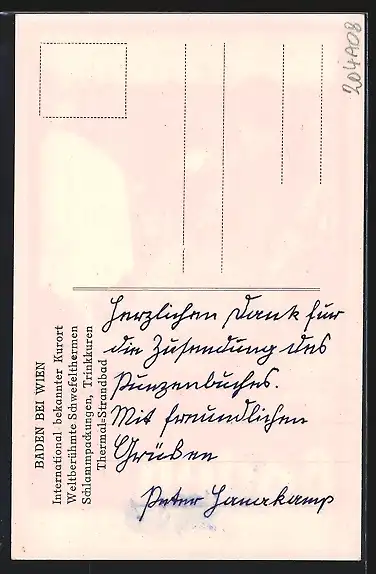 204A08
BADEN BEI WIEN
International bekannter Kurort
Weltberühmte Schwefelthermen
Schlammpackungen, Trinkkuren
Thermal-Strandbad
Herzlichen Dank für
die Zusendung des
Punzenbuches.
Mit freundlichen
Grüßen
Peter